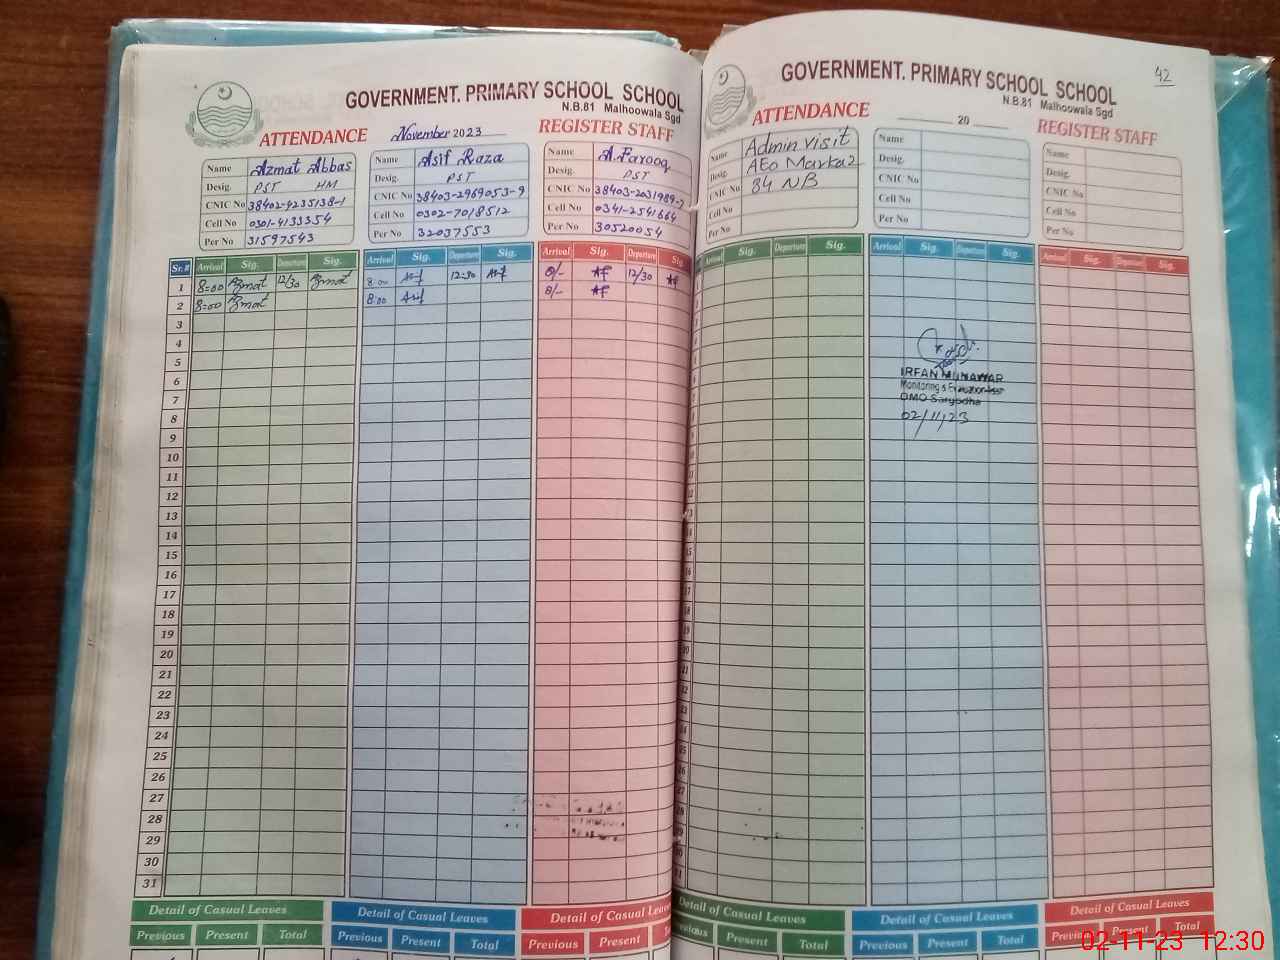 GOVERNMENT. PRIMARY SCHOOL SCHOOL
N.B.81 Malhoowala Sgd
ATTENDANCE November 2023 REGISTER STAFF
Name Azmat Abbas
Desig. PST HM
CNIC No 38402-4235138-1
Cell No 0301-4133354
Per No 31597543
Name Asif Raza
Desig. PST
CNIC No 38403-2969053-9
Cell No 0302-7018512
Per No 32037553
Name A. Farooq
Desig. PST
CNIC No 38403-2031989-7
Cell No 0341-2541664
Per No 30520054
Sr.# Arrival Sig. Departure Sig. Arrival Sig. Departure Sig. Arrival Sig. Departure Sig.
1 8=00 Azmat 12/30 Azmat 8:00 Asif 12:30 Asif 8/- AF 12/30 AF
2 8=00 Azmat 8:00 Asif 8/- AF
3
4
5
6
7
8
9
10
11
12
13
14
15
16
17
18
19
20
21
22
23
24
25
26
27
28
29
30
31
Detail of Casual Leaves Detail of Casual Leaves Detail of Casual Leaves
Previous Present Total Previous Present Total Previous Present
42
GOVERNMENT. PRIMARY SCHOOL SCHOOL
N.B.81 Malhoowala Sgd
ATTENDANCE 20 REGISTER STAFF
Name Admin visit
Desig. AEO Markaz
CNIC No 84 NB
Cell No
Per No
Name
Desig.
CNIC No
Cell No
Per No
Name
Desig.
CNIC No
Cell No
Per No
Arrival Sig. Departure Sig. Arrival Sig. Departure Sig. Arrival Sig. Departure Sig.
IRFAN MUNAWAR
Monitoring & Evaluation
DMO Sargodha
02/11/23
Detail of Casual Leaves Detail of Casual Leaves Detail of Casual Leaves
Previous Present Total Previous Present Total Previous Present Total
02-11-23 12:30